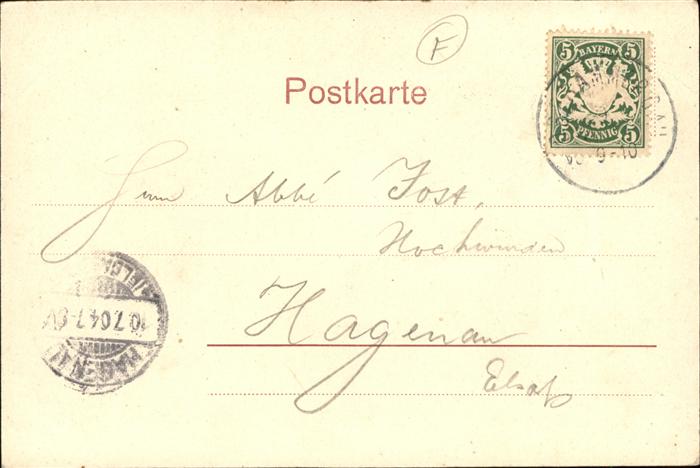 F
5 BAYERN 5
5 PFENNIG 5
Postkarte
Herrn Abbé Jost,
Hochwinden
Hagenau
Elsaß
10.7.04.7-8V
HAGENAU